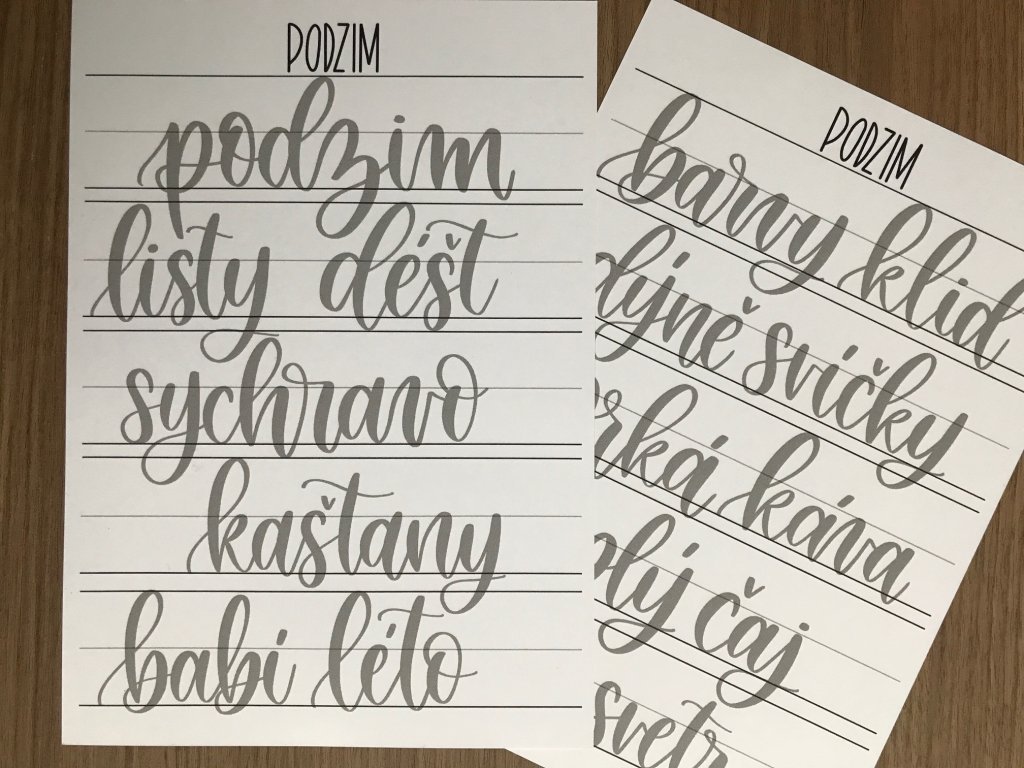 PODZIM
podzim
listy déšt
sychravo
kaštany
babí léto
PODZIM
barvy klid
dýně svíčky
káva
čaj
svetr